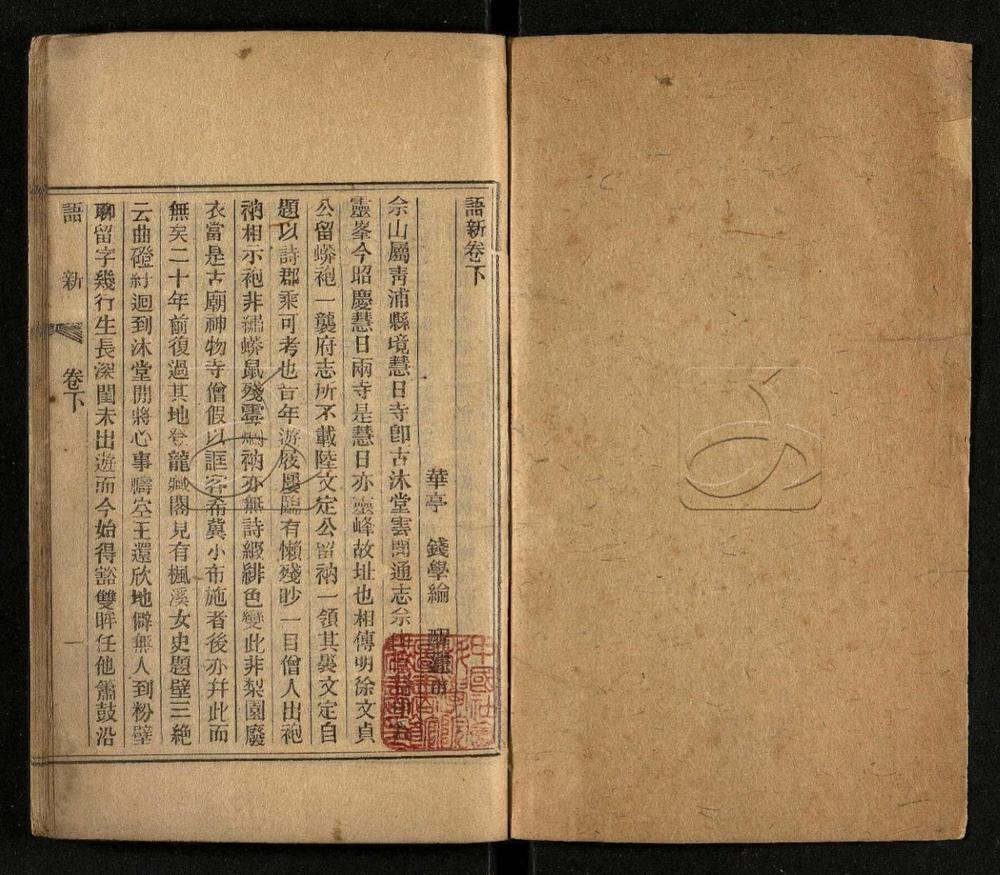 語新卷下
華亭 錢學綸
佘山屬靑浦縣境慧日寺卽古沐堂雲間通志佘
靈峯今昭慶慧日兩寺是慧日亦靈峰故址也相傳明徐文貞
公留蟒袍一襲府志所不載陸文定公留衲一領其裏文定自
題以詩郡乘可考也昔年游屐屢臨有懶殘眇一目僧人出袍
衲相示袍非繡蟒鼠殘衲亦無詩緞緋色變此非梨園廢
衣當是古廟神物寺僧假以誑客希冀小布施者後亦幷此而
無矣二十年前復過其地登龍藏閣見有楓溪女史題壁三絶
云曲磴紆迴到沐堂閒將心事禱空王還欣地僻無人到粉壁
聊留字幾行生長深閨未出遊而今始得豁雙眸任他簫鼓沿
語新 卷下 一